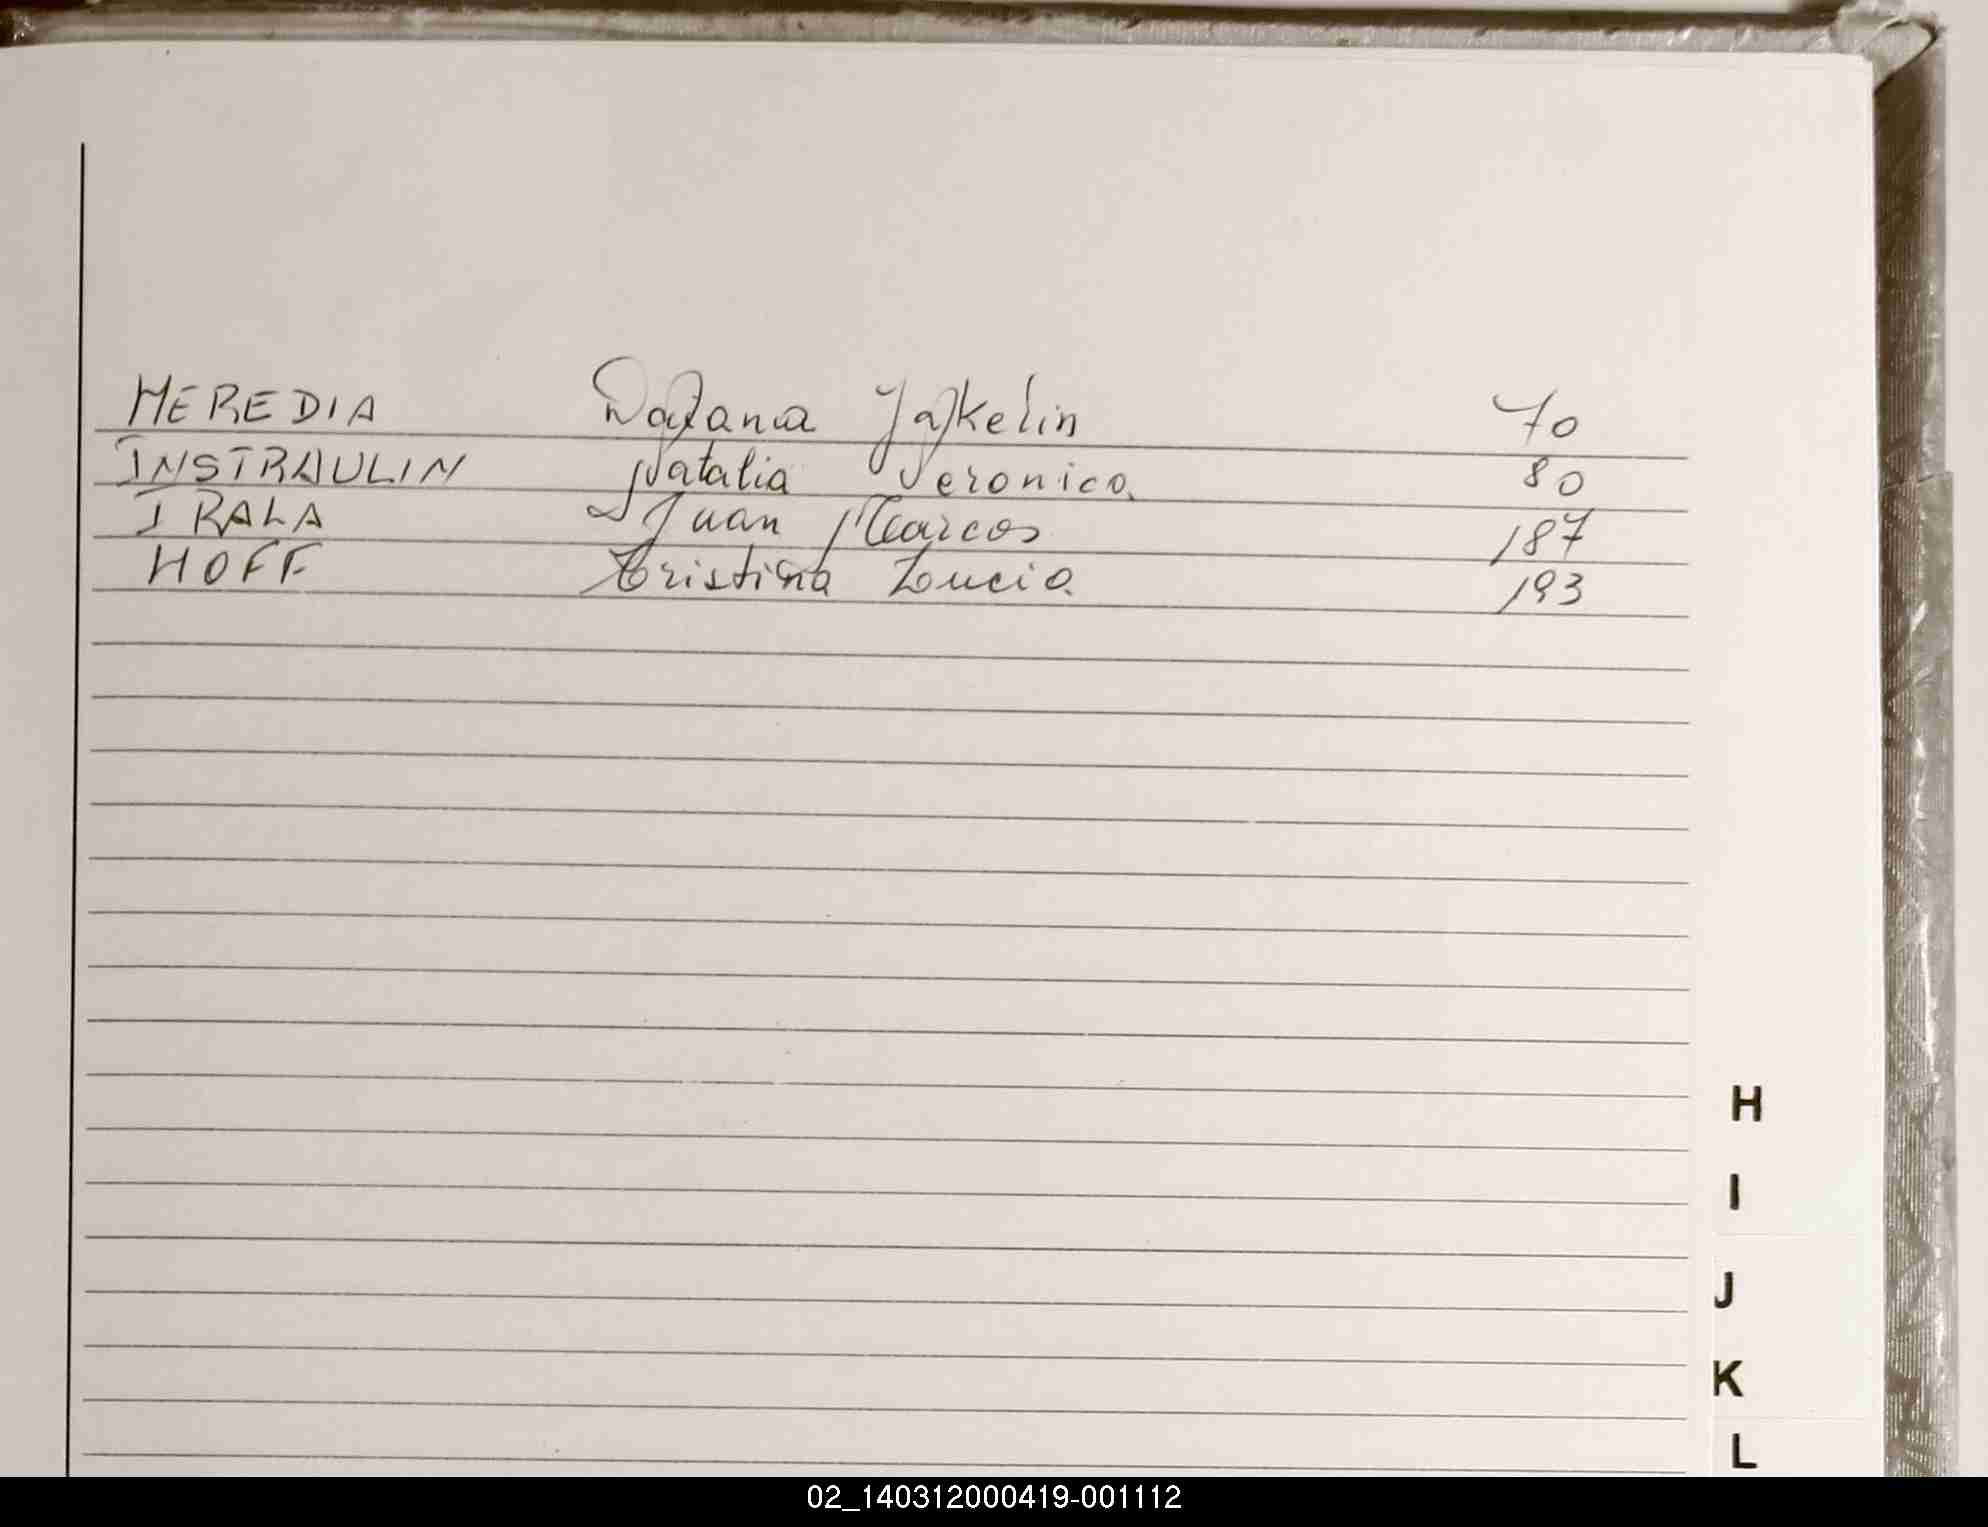 HEREDIA Dayana Jaykelin 70
INSTRAULIN Natalia Veronica 80
IRALA Juan Marcos 187
HOFF Cristina Lucia 193
H
I
J
K
L
02_140312000419-001112